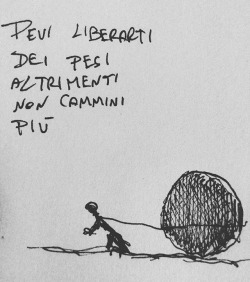 DEVI LIBERARTI
DEI PESI
ALTRIMENTI
NON CAMMINI
PIÙ